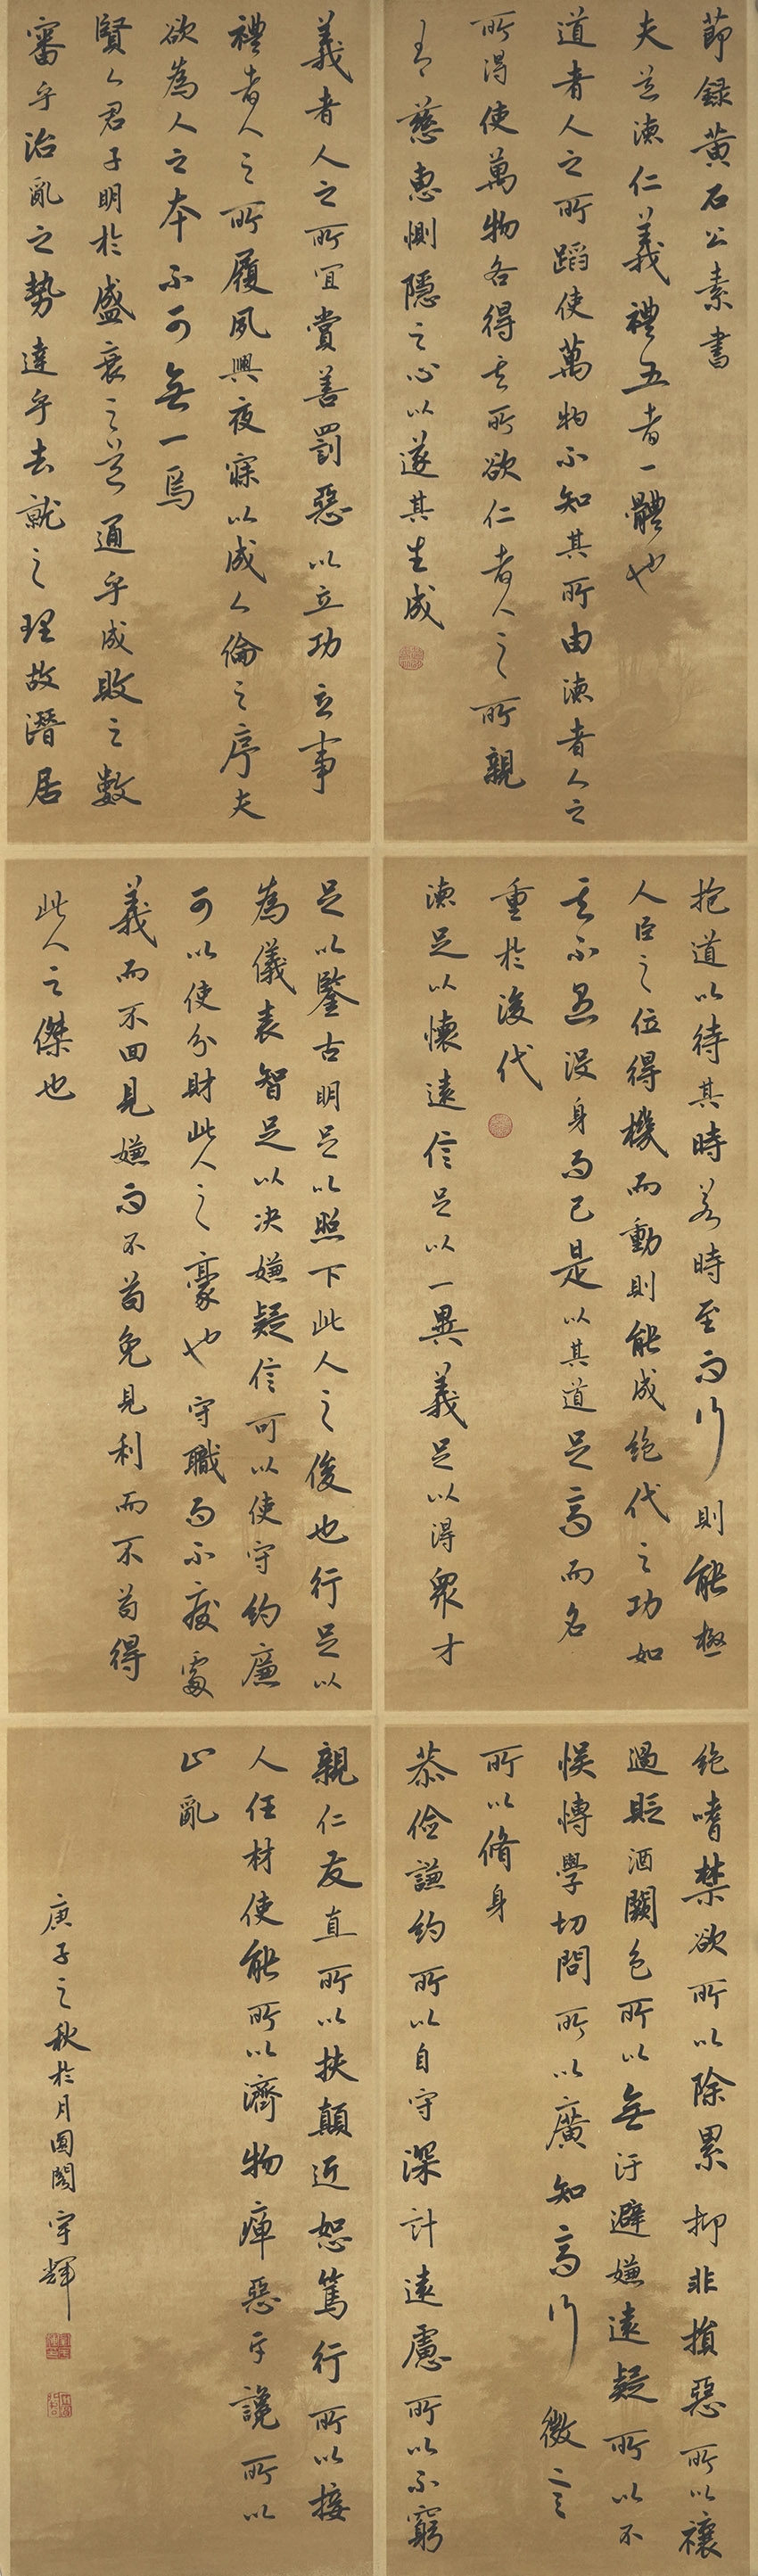 節錄黃石公素書
夫道德仁義禮五者一體也
道者人之所蹈使萬物不知其所由德者人之
所得使萬物各得其所欲仁者人之所親
有慈惠惻隱之心以遂其生成
義者人之所宜賞善罰惡以立功立事
禮者人之所履夙興夜寐以成人倫之序夫
欲為人之本不可無一焉
賢人君子明於盛衰之道通乎成敗之數
審乎治亂之勢達乎去就之理故潛居
抱道以待其時若時至而行則能極
人臣之位得機而動則能成絕代之功如
其不遇沒身而已是以其道足高而名
重於後代
德足以懷遠信足以一異義足以得眾才
足以鑒古明足以照下此人之俊也行足以
為儀表智足以决嫌疑信可以使守約廉
可以使分財此人之豪也守職而不廢處
義而不回見嫌而不苟免見利而不苟得
此人之傑也
絕嗜禁欲所以除累抑非損惡所以禳
過貶酒闕色所以無汙避嫌遠疑所以不
悮博學切問所以廣知高行微言
所以脩身
恭儉謙約所以自守深計遠慮所以不窮
親仁友直所以扶顛近恕篤行所以接
人任材使能所以濟物癉惡斥讒所以
止亂
庚子之秋於月圓閣宇輝